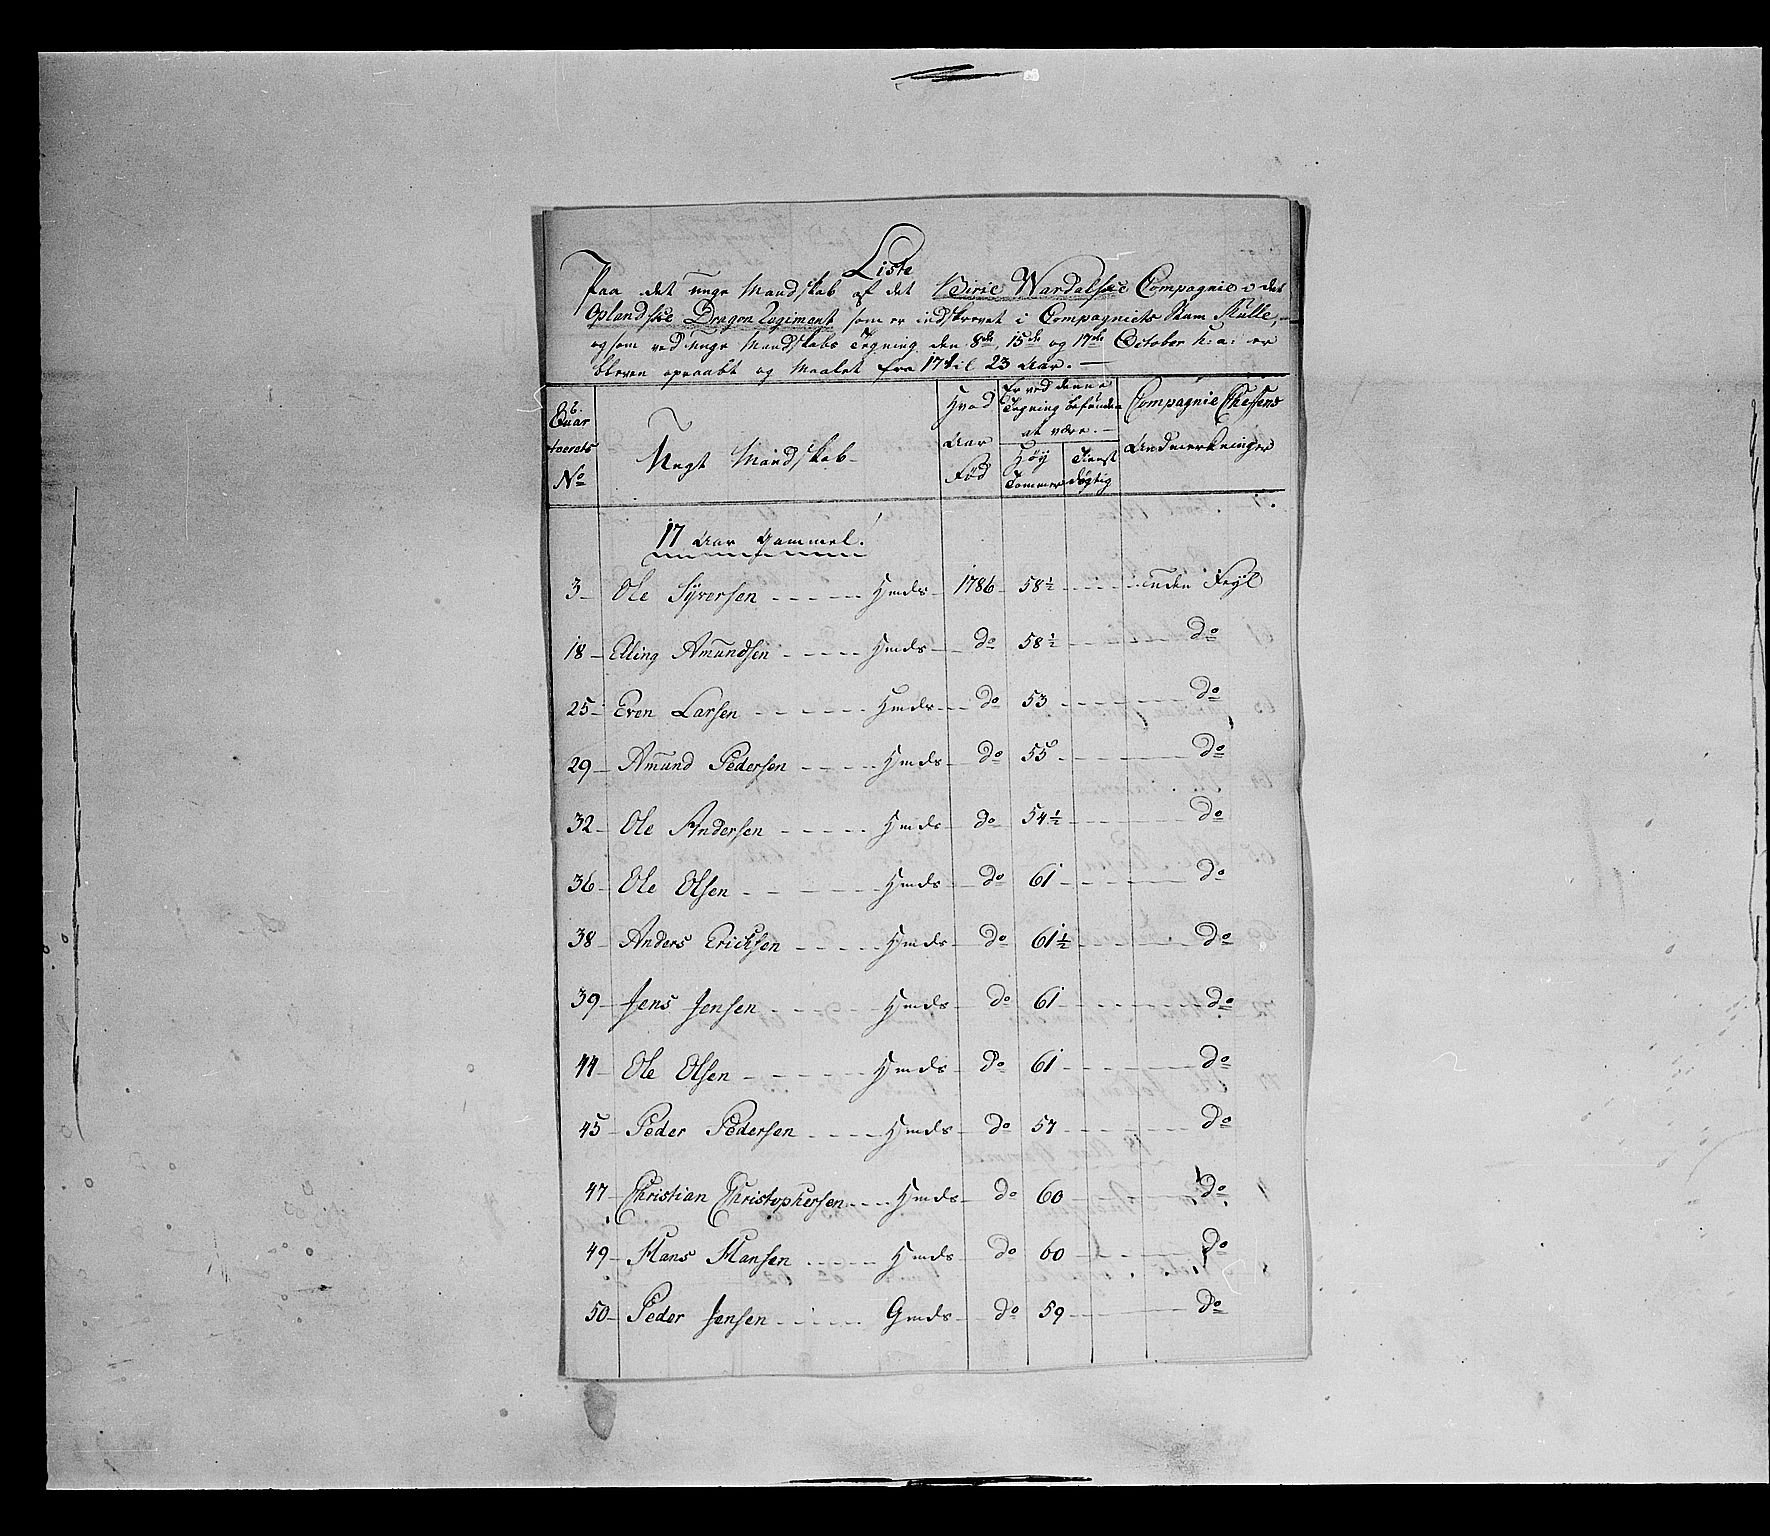 Liste
Paa det unge Mandskab af det Birie Wardalske Compagnie i det
Oplandske Dragon Regiment som er indskrevet i Compagniets Stam Rulle,
og som ved unge Mandskabs Tegning den 8de, 15de og 17de October h: a: er
bleven opraabt og Maalet fra 17 til 23 Aar. —
Quar
teerets
No
Ungt Mandskab
Hvad
Aar
Fød
Er ved denne
Tegning befunden
at være. —
Høy
Tommer
Tienst
dygtig
Compagnie Chefens
Anmerkninger
17 Aar Gammel.
3 Ole Syversen - - - - - Hmds 1786 58½ - - - uden Feyl
18 Elling Amundsen - - - - Hmds do 58½ - - - do
25 Even Larsen - - - - Hmds do 53 - - - do
29 Amund Pedersen - - - - Hmds do 55 - - - do
32 Ole Andersen - - - - Hmds do 54½ - - - do
36 Ole Olsen - - - - Hmds do 61 - - - do
38 Anders Ericksen - - - - Hmds do 61½ - - - do
39 Jens Jensen - - - - Hmds do 61 - - - do
44 Ole Olsen - - - - Hmds do 61 - - - do
45 Peder Pedersen - - - - Hmds do 57 - - - do
47 Christian Christophersen - - - Hmds do 60 - - - do
49 Hans Hansen - - - - Hmds do 60 - - - do
50 Peder Jensen - - - - Gmds do 59 - - - do